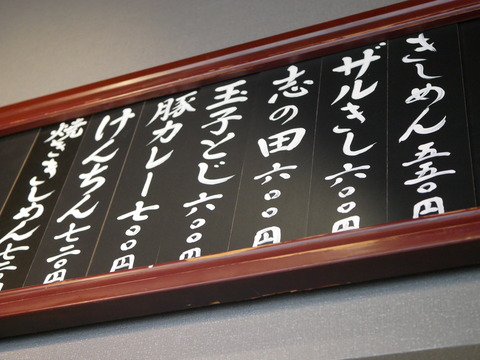 きしめん五五〇円
ザルきし六〇〇円
志の田六〇〇円
玉子とじ六〇〇円
豚カレー七〇〇円
けんちん七二〇円
焼ききしめん七二〇